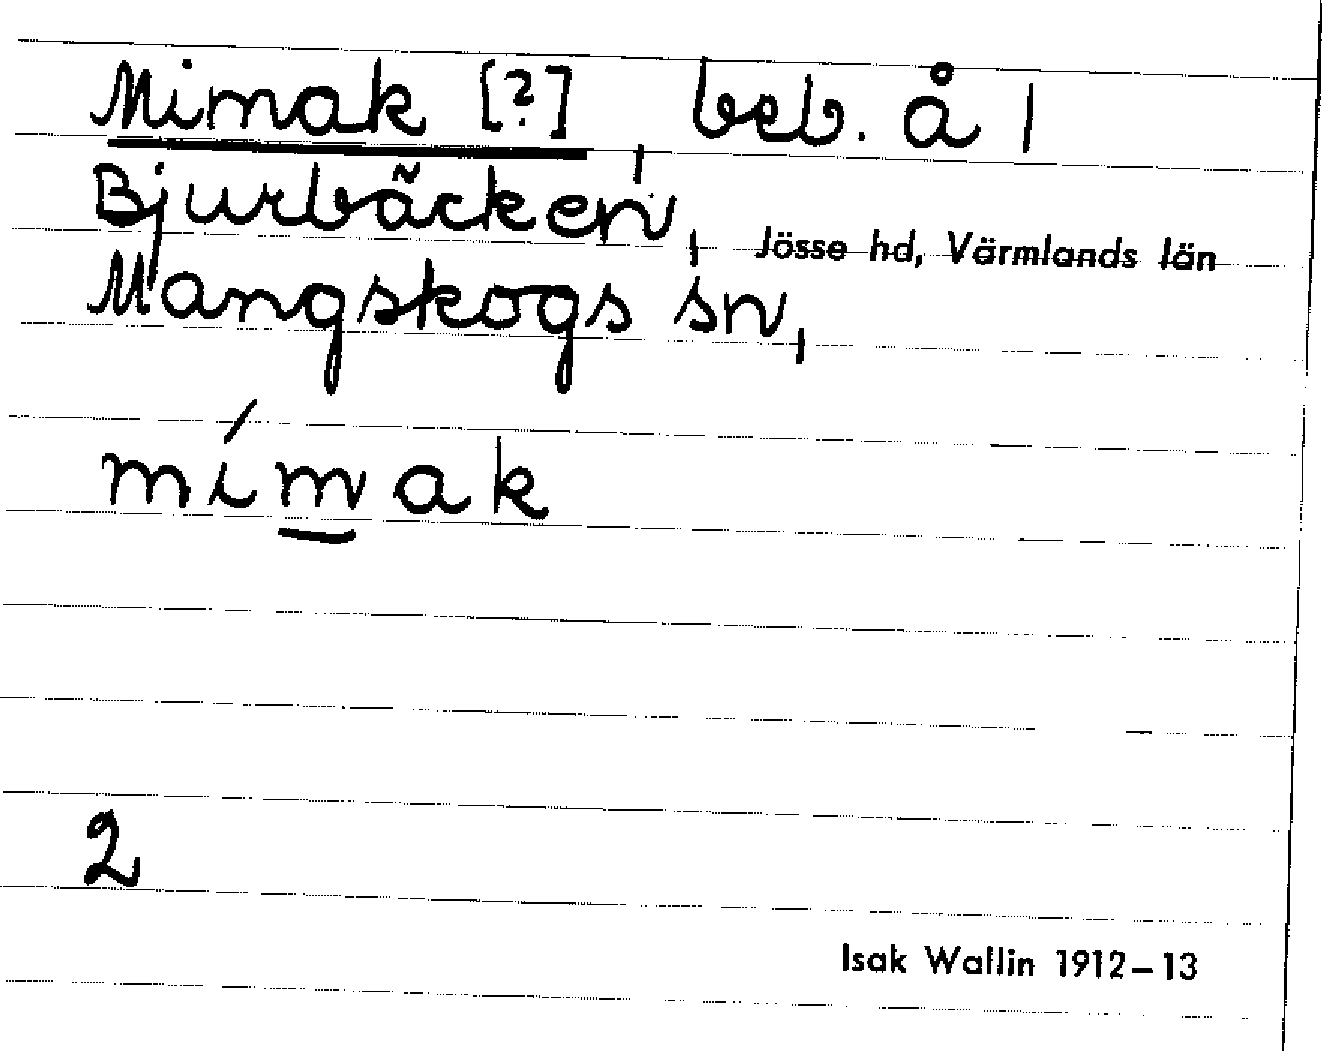 Mimak [?], beb. å 1
Bjurbäcken,
Jösse hd, Värmlands län
Mangskogs sn,
mímak
2
Isak Wallin 1912–13